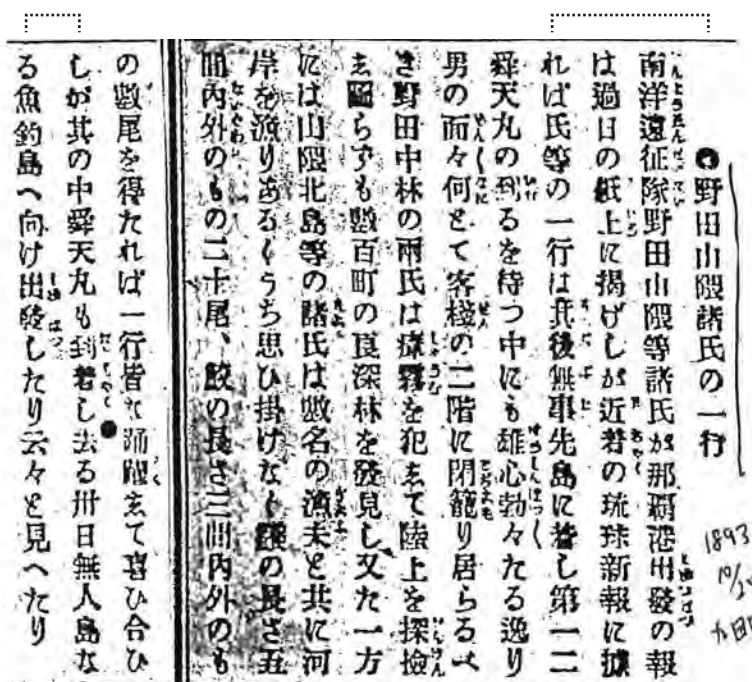 野田山隈諸氏の一行
南洋遠征隊野田山隈等諸氏が那覇港出發の報
は過日の紙上に掲げしが近着の琉球新報に據
れば氏等の一行は其後無事先島に着し第一二
舜天丸の到るを待つ中にも雄心勃々たる逸り
男の面々何とて客棧の二階に閉籠り居らるべ
き野田中林の兩氏は瘴霧を犯して陸上を探檢
し圖らずも數百町の良深林を發見し又た一方
には山隈北島等の諸氏は數名の漁夫と共に河
岸を漁りあるくうち思ひ掛けなく鰐の長さ五
間内外のもの二十尾、鮫の長さ三間内外のも
の數尾を得たれば一行皆な踊躍して喜び合ひ
しが其の中舜天丸も到着し去る卅日無人島な
る魚釣島へ向け出發したり云々と見へたり
1893